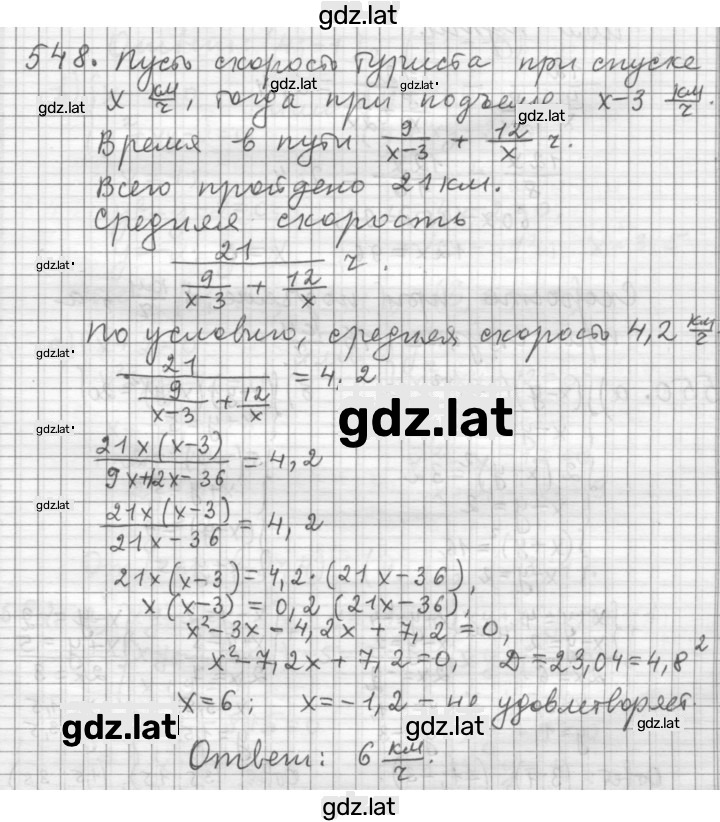 gdz.lat
548. Пусть скорость туриста при спуске
gdz.lat gdz.lat
x км/ч, тогда при подъеме x-3 км/ч.
gdz.lat gdz.lat
Время в пути 9/(x-3) + 12/x ч.
Всего пройдено 21 км.
Средняя скорость
21/(9/(x-3) + 12/x) ч.
gdz.lat
По условию, средняя скорость 4,2 км/ч
gdz.lat
21/(9/(x-3) + 12/x) = 4,2
gdz.lat
gdz.lat
21x(x-3)/(9x+12x-36) = 4,2
gdz.lat
21x(x-3)/(21x-36) = 4,2
21x(x-3) = 4,2·(21x-36),
x(x-3) = 0,2(21x-36),
x²-3x-4,2x+7,2=0,
x²-7,2x+7,2=0, Д=23,04=4,8²
x=6; x=-1,2 - не удовлетворяет.
gdz.lat gdz.lat gdz.lat
Ответ: 6 км/ч.
gdz.lat